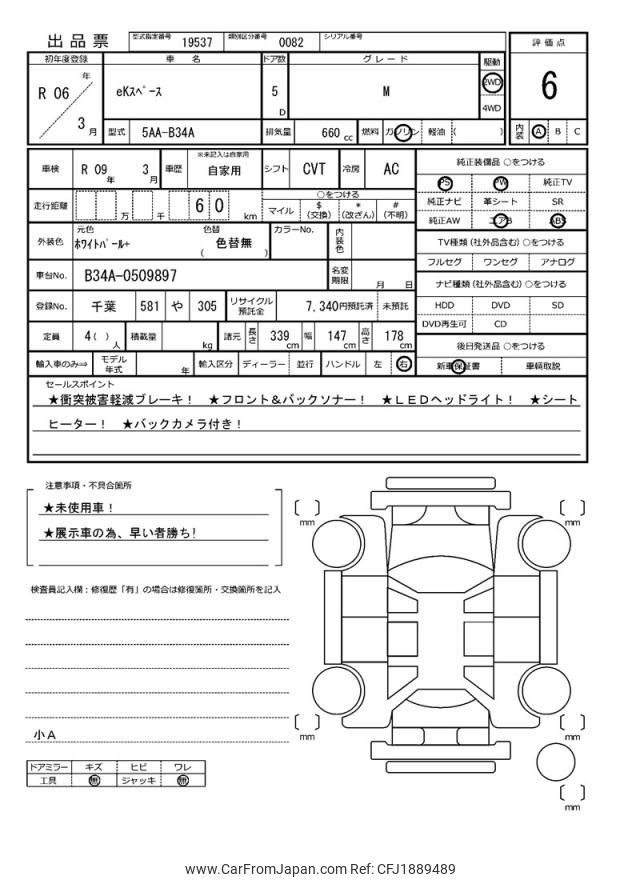 出品票
型式指定番号 19537 類別区分番号 0082 シリアル番号
初年度登録 車名 ドア数 グレード 駆動 評価点
R 06 年 3 月 eKスペース 5 D M 2WD 4WD 6
型式 5AA-B34A 排気量 660 cc 燃料 ガソリン 軽油 ( ) 内装 A B C
車検 R 09 年 3 月 車歴 ※未記入は自家用 自家用 シフト CVT 冷房 AC
純正装備品 ○をつける
PS PW 純正TV
走行距離 万 千 6 0 km ○をつける
マイル $ (交換) * (改ざん) # (不明)
純正ナビ 革シート SR
純正AW エアB ABS
外装色 元色 ホワイトパール+ 色替 ( 色替無 ) カラーNo. 内装色
TV種類 (社外品含む) ○をつける
フルセグ ワンセグ アナログ
車台No. B34A-0509897 名変期限 月 日
ナビ種類 (社外品含む) ○をつける
登録No. 千葉 581 や 305 リサイクル預託金 7,340円預託済 未預託
HDD DVD SD
DVD再生可 CD
定員 4 ( ) 人 積載量 kg 諸元 長さ 339 cm 幅 147 cm 高さ 178 cm
後日発送品 ○をつける
輸入車のみ⇒ モデル年式 年 輸入区分 ディーラー 並行 ハンドル 左 右
新車保証書 車輌取説
セールスポイント
★衝突被害軽減ブレーキ! ★フロント&バックソナー! ★LEDヘッドライト! ★シート
ヒーター! ★バックカメラ付き!
注意事項・不具合箇所
★未使用車!
★展示車の為、早い者勝ち!
検査員記入欄:修復歴「有」の場合は修復箇所・交換箇所を記入
小A
ドアミラー キズ ヒビ ワレ
工具 無 ジャッキ 無
mm
mm
mm
mm
mm
www.CarFromJapan.com Ref: CFJ1889489